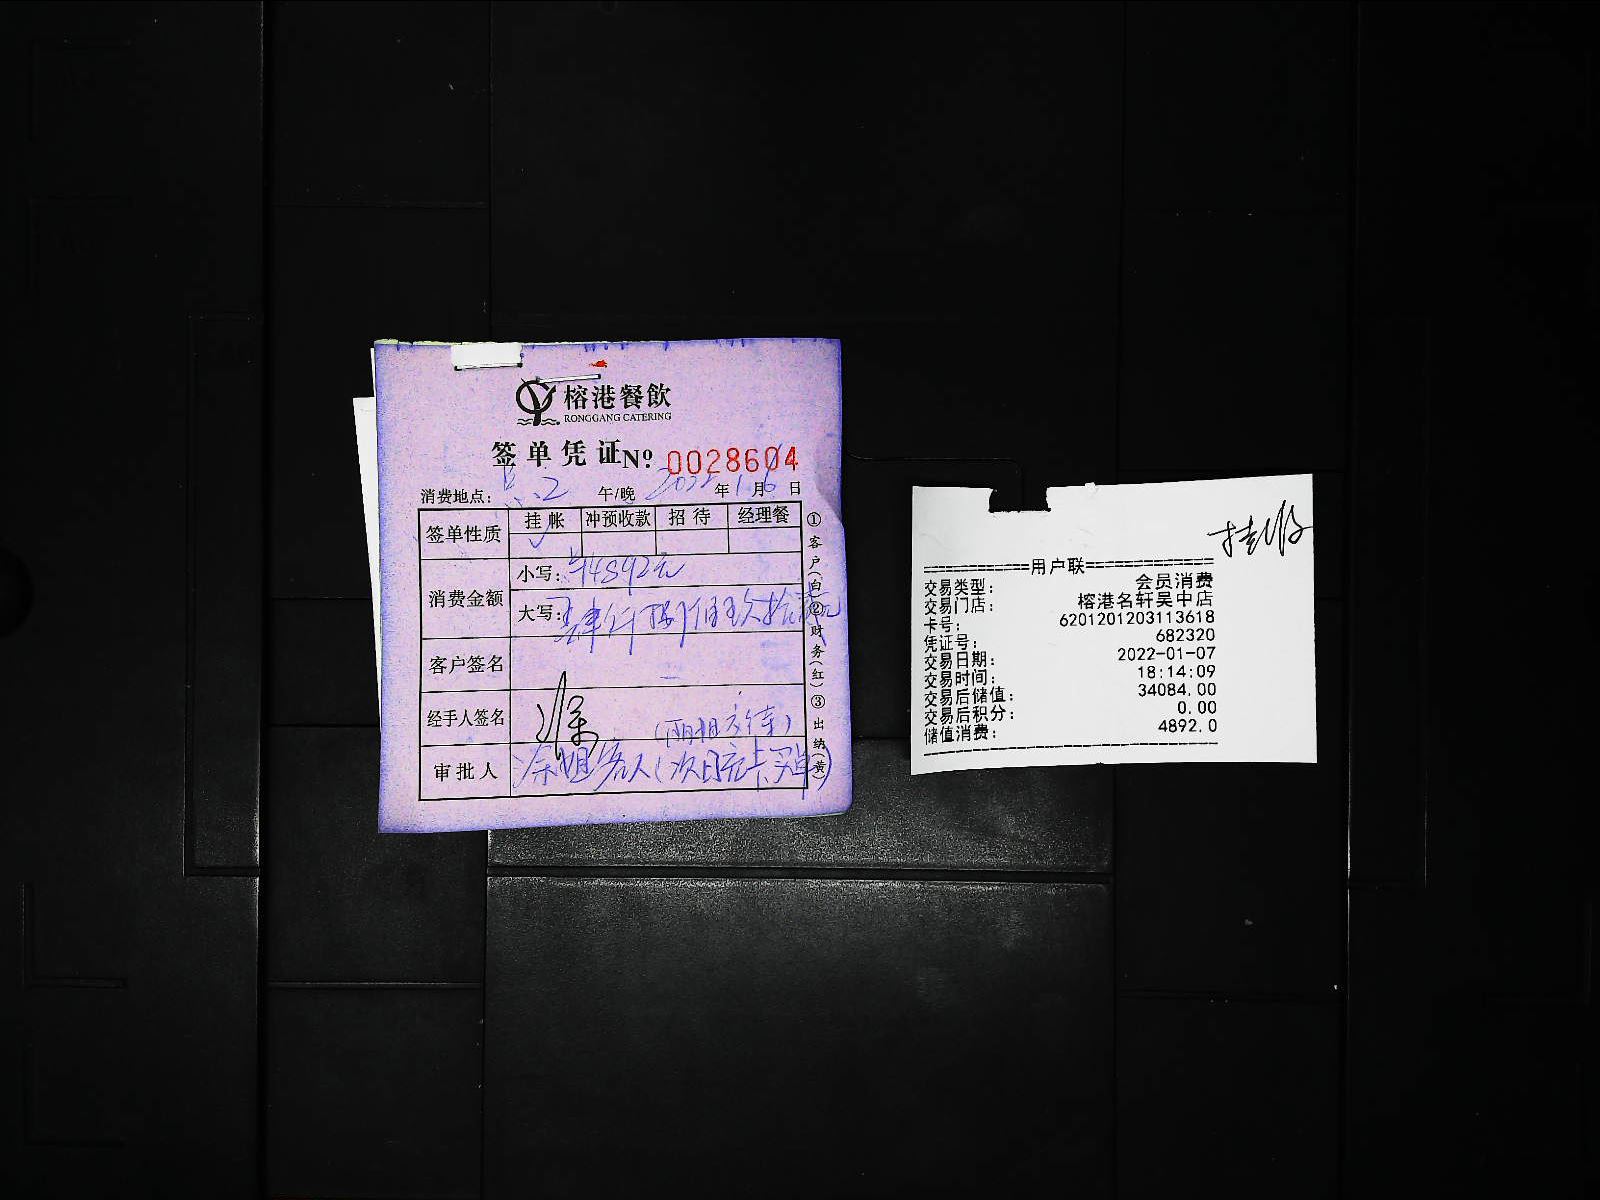 榕港餐飲
RONGGANG CATERING
签单凭证 Nº 0028604
消费地点： 午/晚 2022年1月6日
签单性质 挂帐 冲预收款 招待 经理餐
✓
消费金额 小写：¥4892元
大写：肆仟捌佰玖拾贰元
客户签名
经手人签名
审批人 涂姐客人(次日充卡买单)
①客户(白)②财务(红)③出纳(黄)
挂账
=============用户联=============
交易类型： 会员消费
交易门店： 榕港名轩吴中店
卡号： 6201201203113618
凭证号： 682320
交易日期： 2022-01-07
交易时间： 18:14:09
交易后储值： 34084.00
交易后积分： 0.00
储值消费： 4892.0